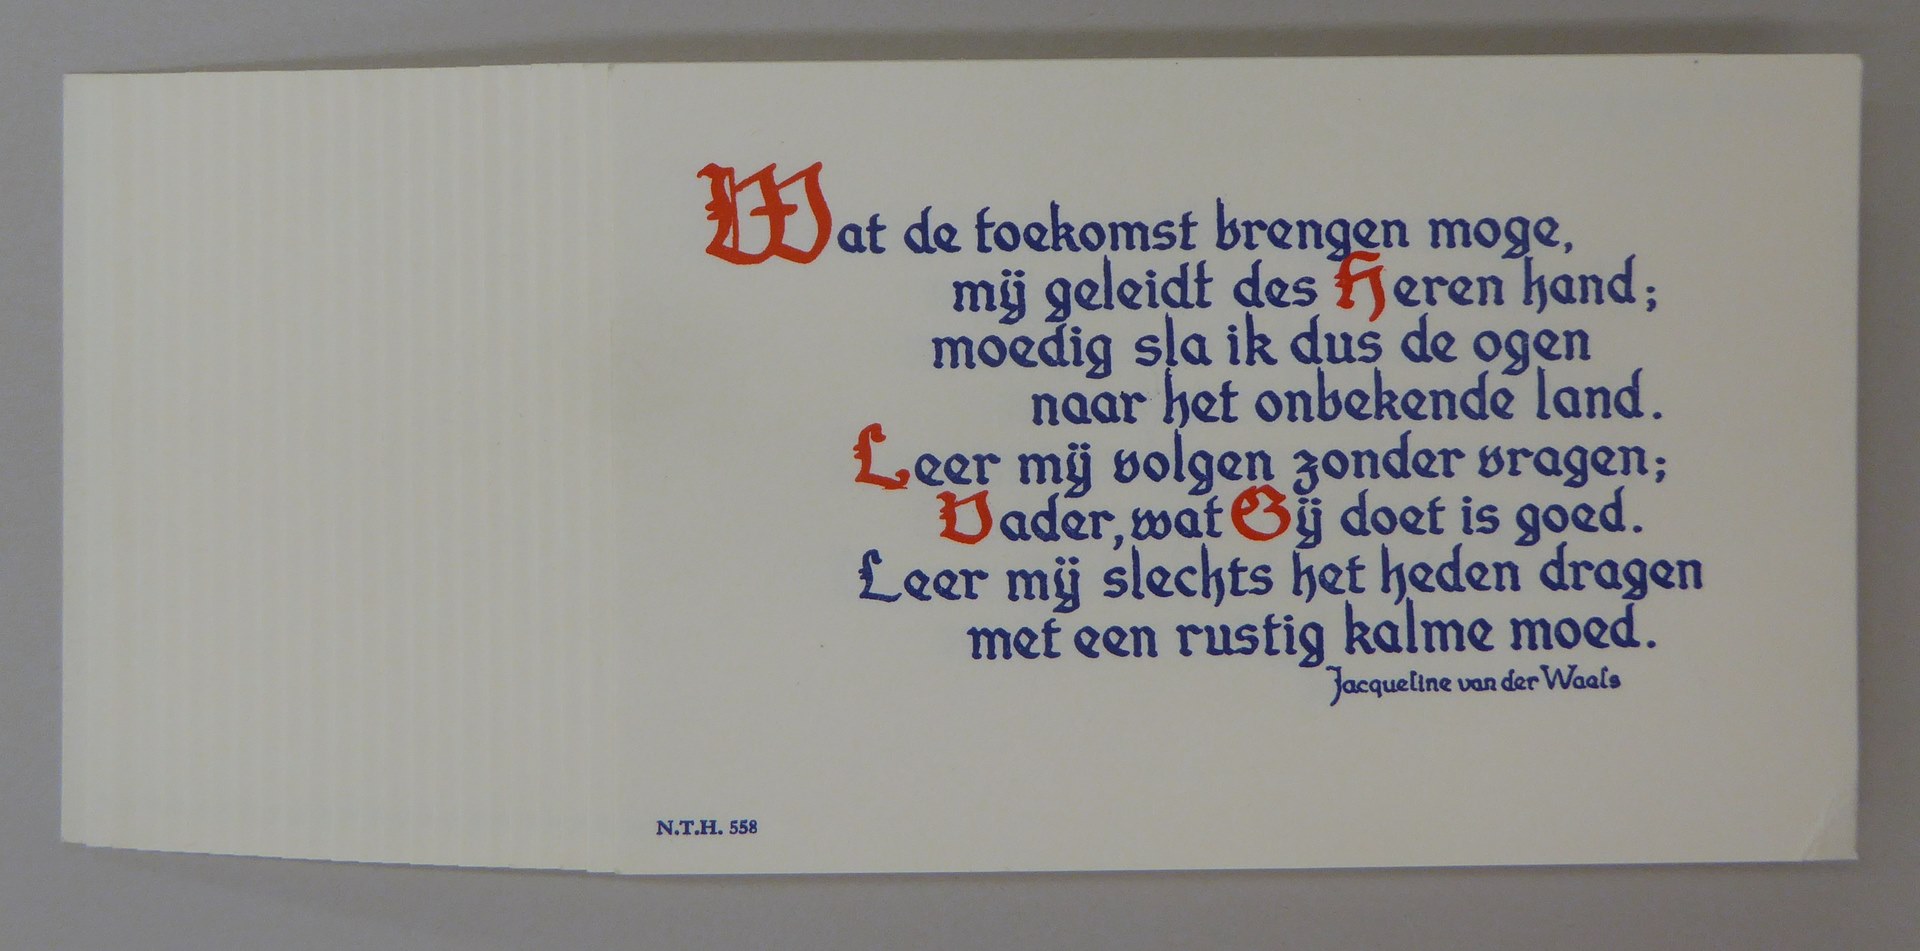 Wat de toekomst brengen moge,
mij geleidt des Heren hand;
moedig sla ik dus de ogen
naar het onbekende land.
Leer mij volgen zonder vragen;
Vader, wat Gij doet is goed.
Leer mij slechts het heden dragen
met een rustig kalme moed.
Jacqueline van der Waals
N.T.H. 558